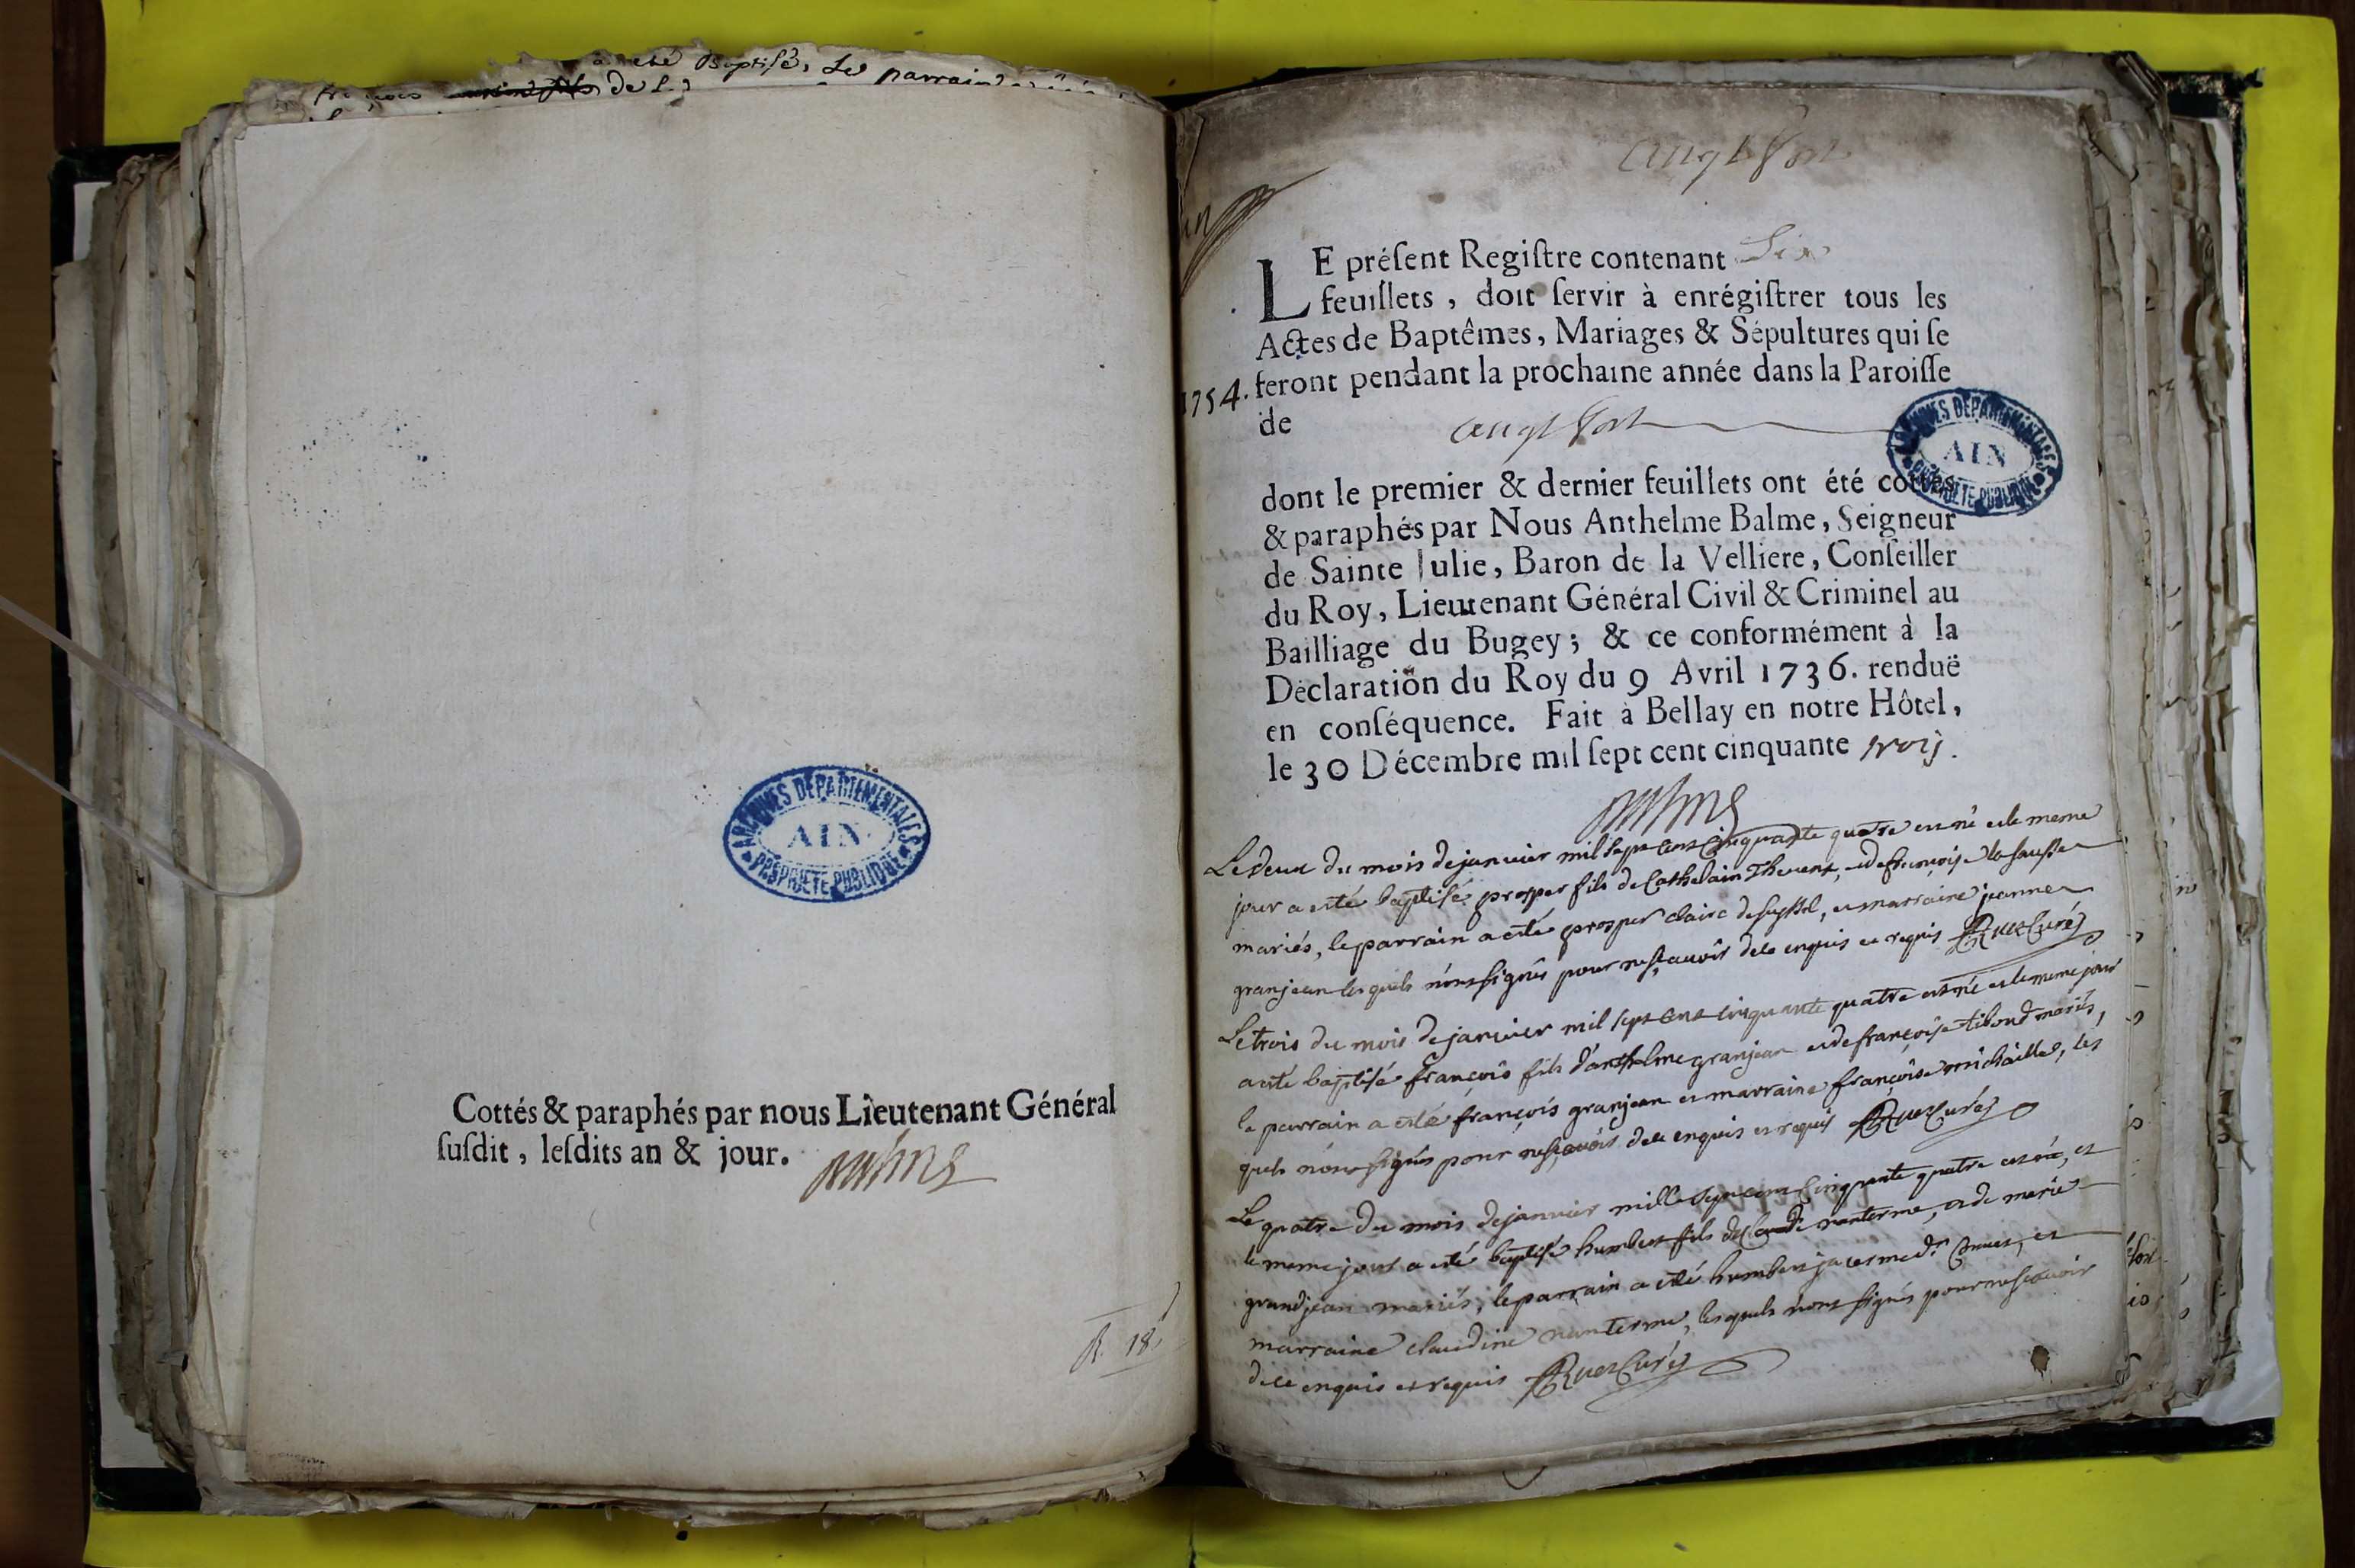 a eté Baptisé, Le parrain
de
ARCHIVES DEPARTEMENTALES
AIN
PROPRIETE PUBLIQUE
Cottés & paraphés par nous Lieutenant Général
ſuſdit, leſdits an & jour.
Balme
R. 18
anglefort
LE préſent Regiſtre contenant Six
feuillets, doit ſervir à enrégiſtrer tous les
Actes de Baptêmes, Mariages & Sépultures qui ſe
1754. feront pendant la prochaine année dans la Paroiſſe
de anglefort
ARCHIVES DEPARTEMENTALES
AIN
PROPRIETE PUBLIQUE
dont le premier & dernier feuillets ont été cottés
& paraphés par Nous Anthelme Balme, Seigneur
de Sainte Julie, Baron de la Velliere, Conſeiller
du Roy, Lieutenant Général Civil & Criminel au
Bailliage du Bugey; & ce conformément à la
Déclaration du Roy du 9 Avril 1736. renduë
en conſéquence. Fait à Bellay en notre Hôtel,
le 30 Décembre mil ſept cent cinquante trois.
Balme
Le deux du mois de janvier mil sept cent cinquante quatre est né et le meme
jour a esté baptisé prosper fils de Cathelain Thevent, et de françoise la sausse
mariés, le parrain a esté prosper claire de seyssel, et marraine jeanne
granjean lesquels n'ont signés pour ne sçavoir de ce enquis et requis Ruez Curé
Le trois du mois de janvier mil sept cent cinquante quatre est né et le meme jour
a esté baptisé françois fils d'anthelme granjean et de françoise tibond mariés,
le parrain a esté françois granjean et marraine françoise michaille, les
quels n'ont signés pour ne sçavoir de ce enquis et requis Ruez Curé
Le quatre du mois de janvier mille sept cent cinquante quatre est né, et
le meme jour a esté baptisé humbert fils de Claude nanterme, et de marie
grandjean mariés, le parrain a esté humbert et
marraine claudine nanterme, lesquels n'ont signés pour ne sçavoir
de ce enquis et requis Ruez Curé